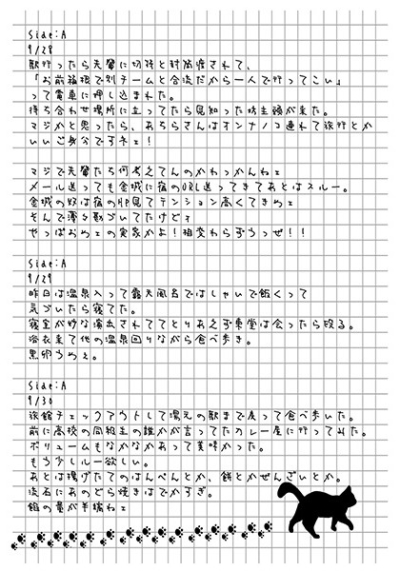 Side:A
9/28
駅行ったら先輩に切符と封筒渡されて、
「お前箱根で別チームと合流だから一人で行ってこい」
って電車に押し込まれた。
待ち合わせ場所に立ってたら見知った坊主頭が来た。
マジかと思ったら、あちらさんはオンナノコ連れて旅行とか
いいご身分ですネェ！
マジで先輩たち何考えてんのかわっかんねェ
メール送っても金城に宿のURL送ってきてあとはスルー。
金城の奴は宿のHP見てテンション高くてきめェ
そんで薄々勘づいてたけどォ
やっぱおめェの実家かよ！相変わらずうっぜ！！
Side:A
9/29
昨日は温泉入って露天風呂ではしゃいで飯くって
気づいたら寝てた。
寝室が妙な演出されててとりあえず東堂は会ったら殴る。
浴衣来て他の温泉回りながら食べ歩き。
黒卵うめェ。
Side:A
9/30
旅館チェックアウトして湯元の駅まで戻って食べ歩いた。
前に高校の同級生の誰かが言ってたカレー屋に行ってみた。
ボリュームもなかなかあって美味かった。
もう少しルー欲しい。
あとは揚げたてのはんぺんとか、餅とかぜんざいとか。
流石にあのどら焼きはでかすぎ。
餡の量が半端ねェ